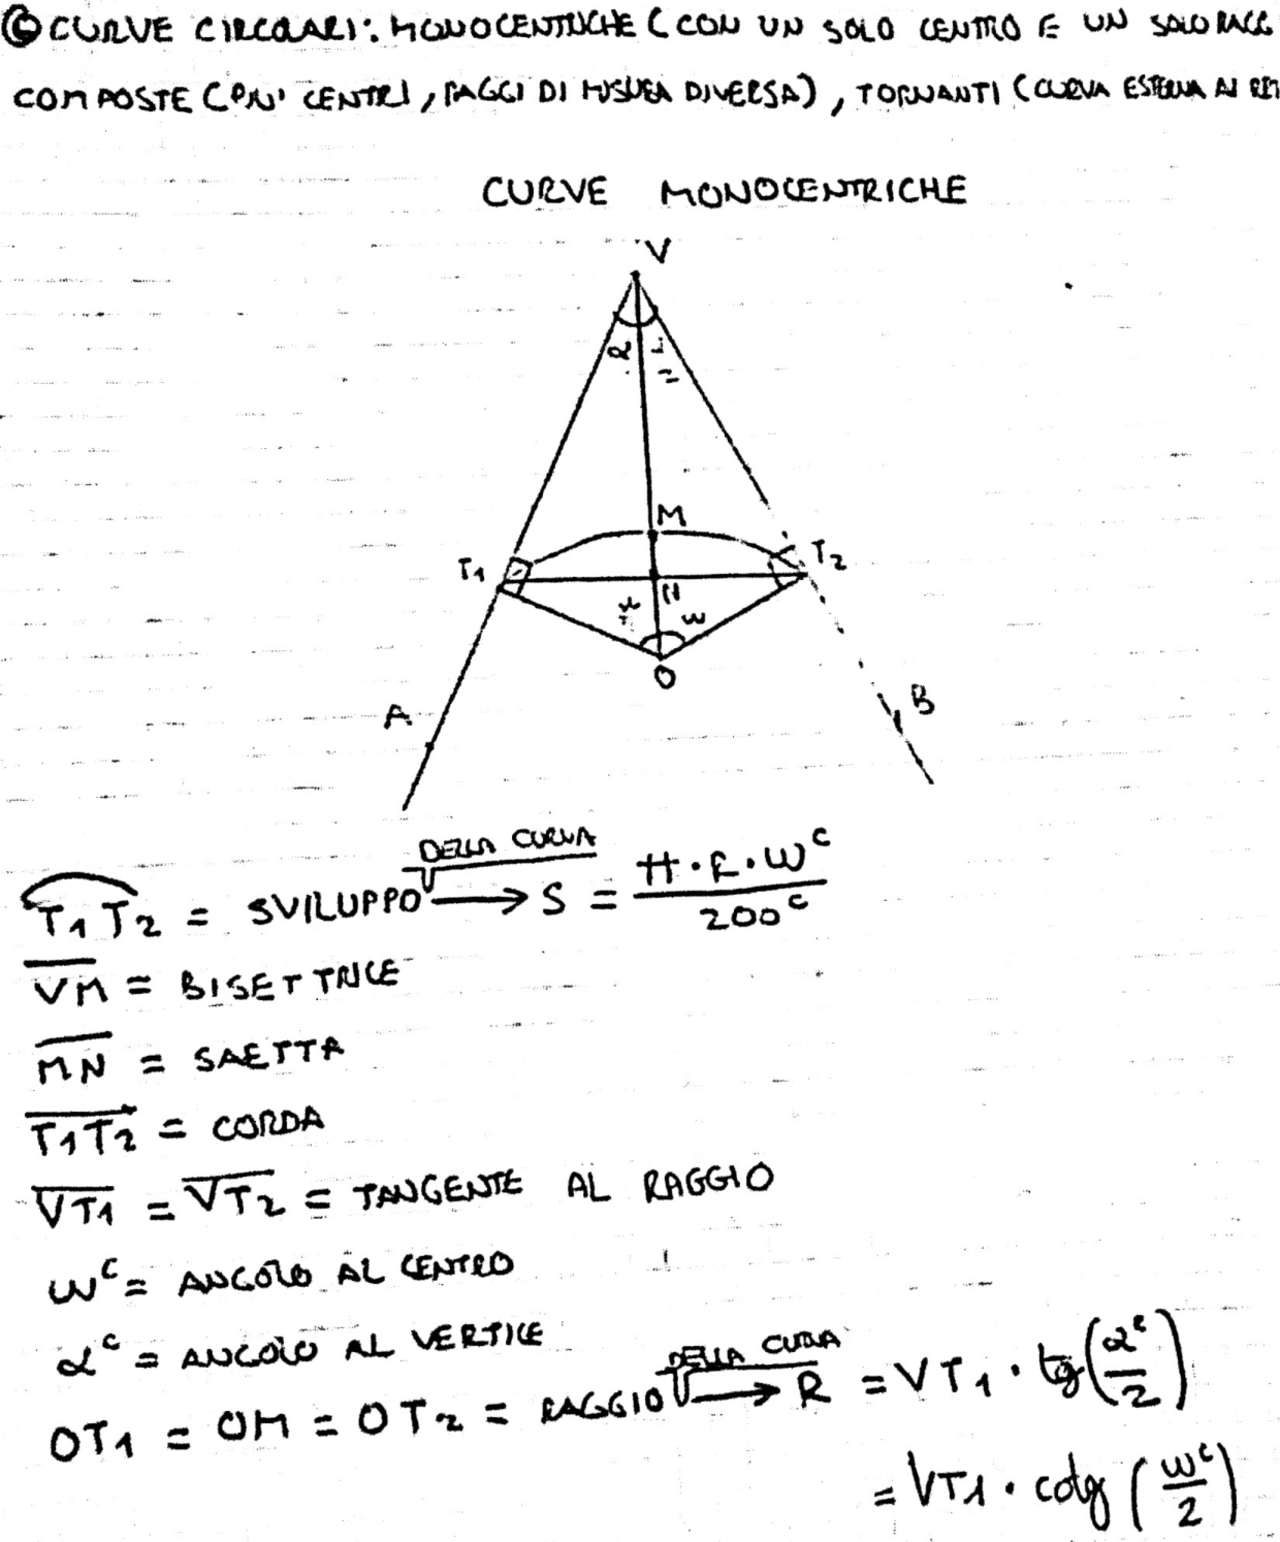 © CURVE CIRCOLARI: MONOCENTRICHE (CON UN SOLO CENTRO E UN SOLO RAGG
COMPOSTE (PIU' CENTRI, RAGGI DI MISURA DIVERSA), TORNANTI (CURVA ESTERNA AI RET
CURVE MONOCENTRICHE
V
α
M
T1 T2
N
ω
O
A
B
DELLA CURVA
T1T2 = SVILUPPO → S = π · R · ω^c / 200^c
VM = BISETTRICE
MN = SAETTA
T1T2 = CORDA
VT1 = VT2 = TANGENTE AL RAGGIO
ω^c = ANGOLO AL CENTRO
α^c = ANGOLO AL VERTICE
DELLA CURVA
OT1 = OM = OT2 = RAGGIO → R = VT1 · tg(α^c/2)
= VT1 · cotg (ω^c/2)